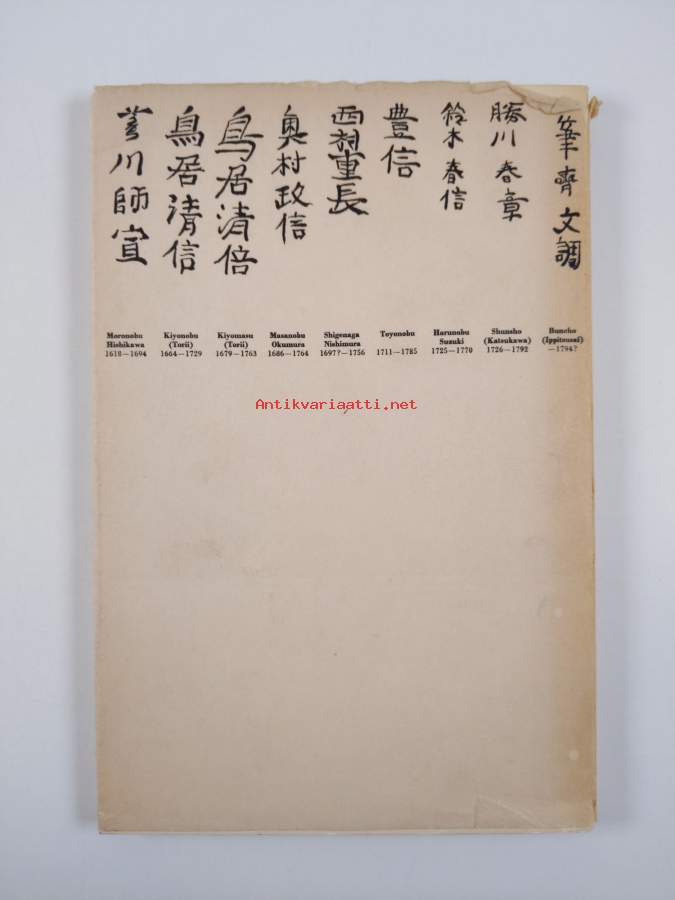 菱川師宣
鳥居清信
鳥居清倍
奥村政信
西村重長
豊信
鈴木春信
勝川春章
筆齊文調
Moronobu
Hishikawa
1618—1694
Kiyonobu
(Torii)
1664—1729
Kiyomasu
(Torii)
1679—1763
Masanobu
Okumura
1686—1764
Shigenaga
Nishimura
1697?—1756
Toyonobu
1711—1785
Harunobu
Suzuki
1725—1770
Shunsho
(Katsukawa)
1726—1792
Buncho
(Ippitsusai)
—1794?
Antikvariaatti.net